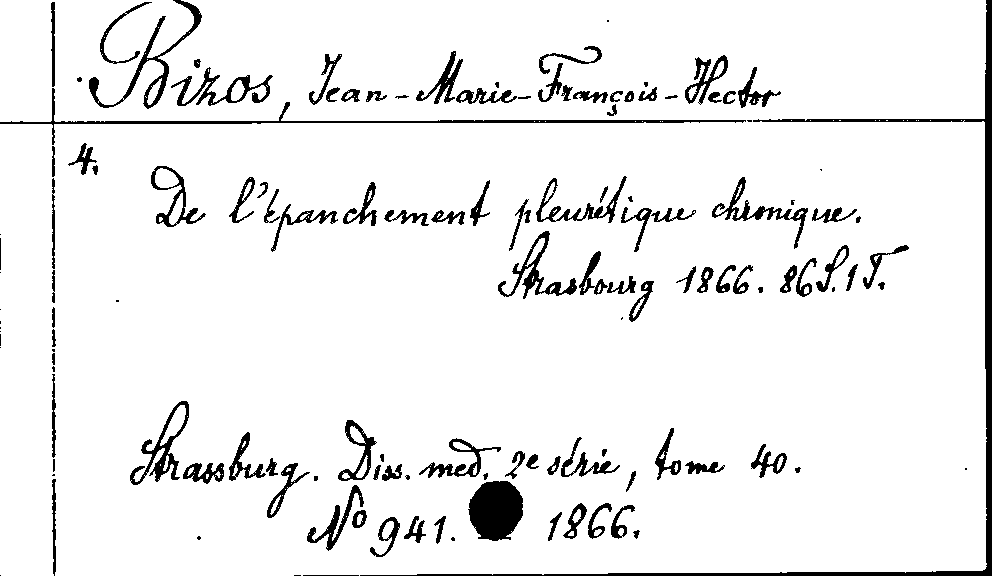 Bizos, Jean-Marie-François-Hector
4.
De l'épanchement pleurétique chronique.
Strasbourg 1866. 86 S. 1 T.
Strassburg. Diss. med. 2e série, tome 40.
No 941. 1866.